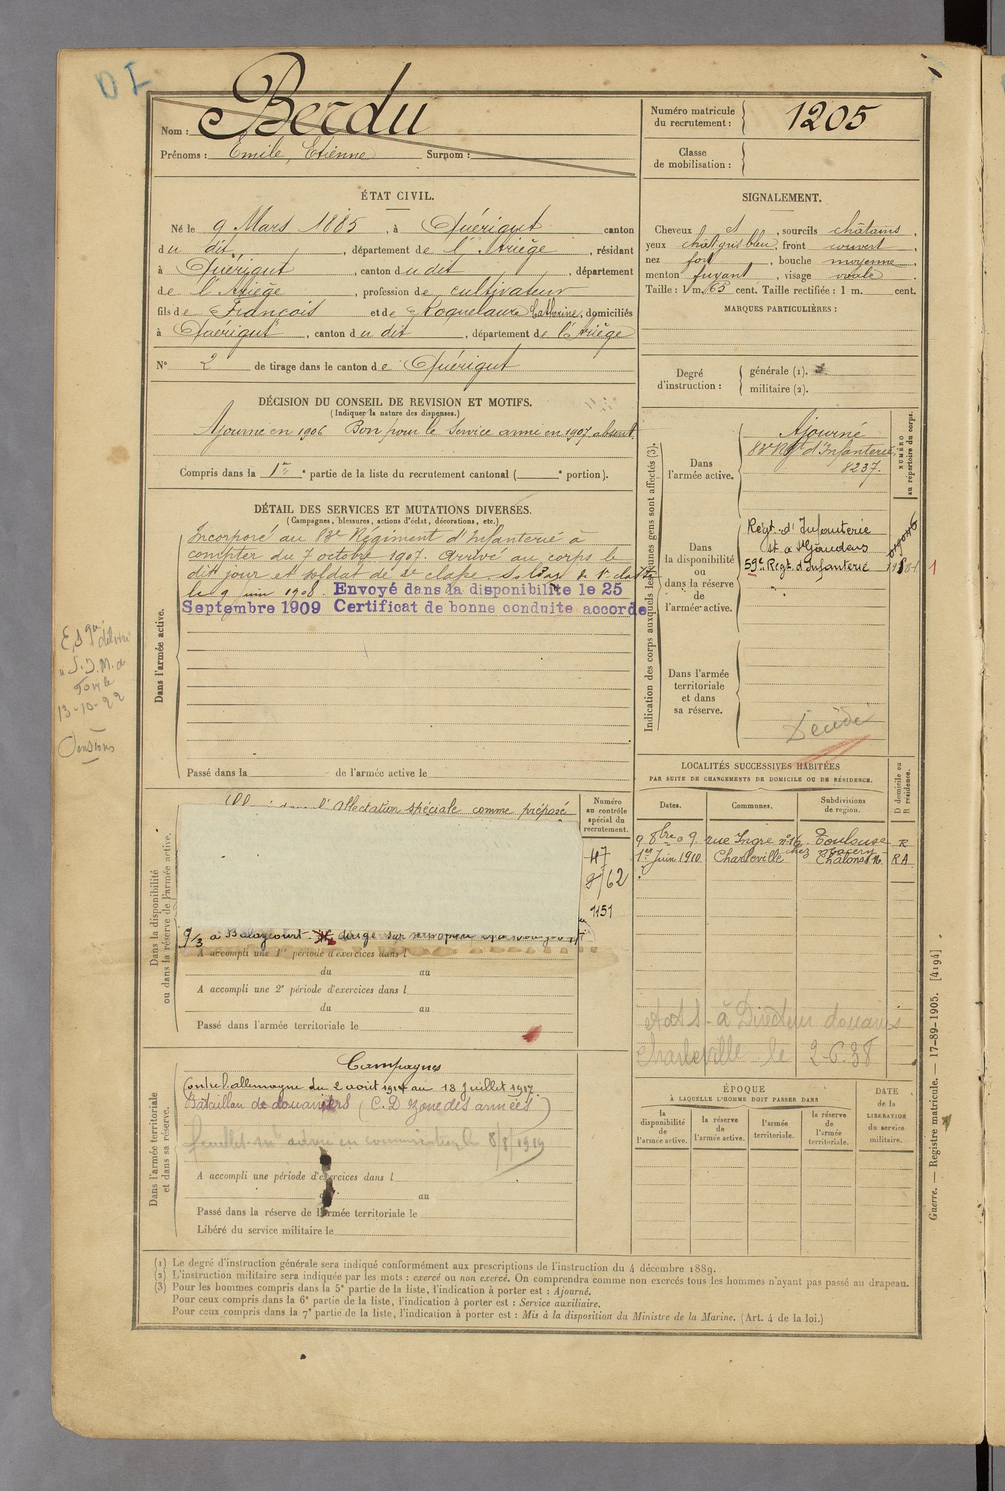 DI
Nom : Berdu
Prénoms : Emile, Etienne Surnom :
Numéro matricule du recrutement : 1205
Classe de mobilisation :
ÉTAT CIVIL.
Né le 9 Mars 1885, à Quérigut canton
du dit, département de l'Ariège, résidant
à Quérigut, canton du dit, département
de l'Ariège, profession de cultivateur
fils de François et de Roquelaure Catherine, domiciliés
à Quérigut, canton du dit, département de l'Ariège
N° 2 de tirage dans le canton de Quérigut
SIGNALEMENT.
Cheveux et, sourcils châtains,
yeux chât gris bleu, front couvert,
nez fort, bouche moyenne,
menton fuyant, visage ovale
Taille : 1 m. 65 cent. Taille rectifiée : 1 m. cent.
MARQUES PARTICULIÈRES :
Degré d'instruction : générale (1). 3
militaire (2).
DÉCISION DU CONSEIL DE REVISION ET MOTIFS.
(Indiquer la nature des dispenses.)
Ajourné en 1906 Bon pour le Service armé en 1907 absent
Compris dans la 1re partie de la liste du recrutement cantonal ( e portion).
DÉTAIL DES SERVICES ET MUTATIONS DIVERSES.
(Campagnes, blessures, actions d'éclat, décorations, etc.)
Dans l'armée active.
Incorporé au 83e Régiment d'Infanterie à
compter du 7 octobre 1907. Arrivé au corps le
dit jour et soldat de 2e classe. Soldat de 1e classe
le 9 juin 1908. Envoyé dans la disponibilité le 25
Septembre 1909 Certificat de bonne conduite accordé
13-10-22
Pensions
Passé dans la de l'armée active le
Indication des corps auxquels les jeunes gens sont affectés (3).
NUMÉRO au répertoire du corps.
Dans l'armée active.
Ajourné
83e Régt d'Infanterie
8237.
Dans la disponibilité ou dans la réserve de l'armée active.
Régt. d'Infanterie
St a St Gaudens
59e Regt. d'Infanterie
1
Dans l'armée territoriale et dans sa réserve.
Décédé
LOCALITÉS SUCCESSIVES HABITÉES
PAR SUITE DE CHANGEMENTS DE DOMICILE OU DE RÉSIDENCE.
Dates. Communes. Subdivisions de région. D domicile ou R résidence.
9 8bre 09. rue Ingre n° 16. Toulouse R
1er Juin 1910 Charleville chez Chalons M. RA
à Directeur douanes
Charleville le 2-6-38
Dans la disponibilité ou dans la réserve de l'armée active.
l'Affectation spéciale comme préposé
Numéro au contrôle spécial du recrutement.
47
8/62
1151
9/3 à Balaycourt. dirigé sur
A accompli une 1re période d'exercices dans l
du au
A accompli une 2e période d'exercices dans l
du au
Passé dans l'armée territoriale le
Dans l'armée territoriale et dans sa réserve.
Campagnes
Contre l'allemagne du 2 août 1914 au 18 Juillet 1917
Bataillon de douaniers (C. D zone des armées)
8/8/1919
A accompli une période d'exercices dans l
du au
Passé dans la réserve de l'armée territoriale le
Libéré du service militaire le
ÉPOQUE
À LAQUELLE L'HOMME DOIT PASSER DANS
la disponibilité de l'armée active. la réserve de l'armée active. l'armée territoriale. la réserve de l'armée territoriale.
DATE de la LIBÉRATION du service militaire.
(1) Le degré d'instruction générale sera indiqué conformément aux prescriptions de l'instruction du 4 décembre 1889.
(2) L'instruction militaire sera indiquée par les mots : exercé ou non exercé. On comprendra comme non exercés tous les hommes n'ayant pas passé au drapeau.
(3) Pour les hommes compris dans la 5e partie de la liste, l'indication à porter est : Ajourné.
Pour ceux compris dans la 6e partie de la liste, l'indication à porter est : Service auxiliaire.
Pour ceux compris dans la 7e partie de la liste, l'indication à porter est : Mis à la disposition du Ministre de la Marine. (Art. 4 de la loi.)
Guerre. — Registre matricule. — 17-89-1905. [4194]